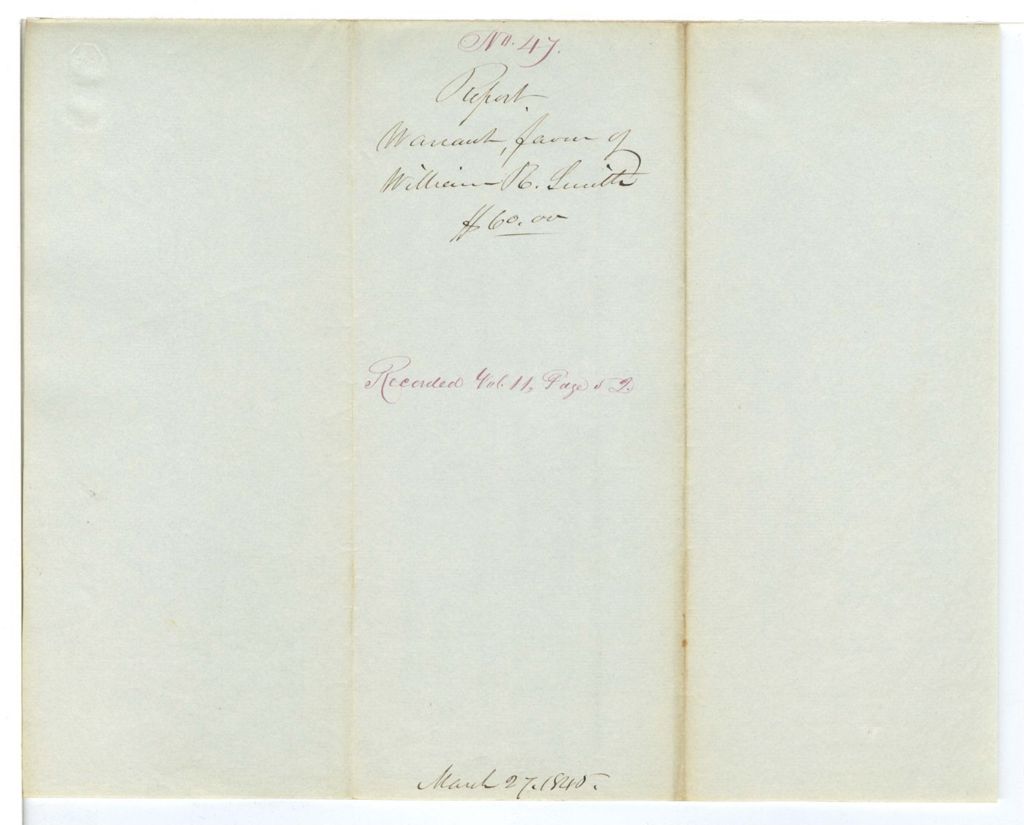 No. 47.
Report.
Warrant, favor of
William R. Smith
$60.00
Recorded Vol. 11, Page 52.
March 27. 1845.